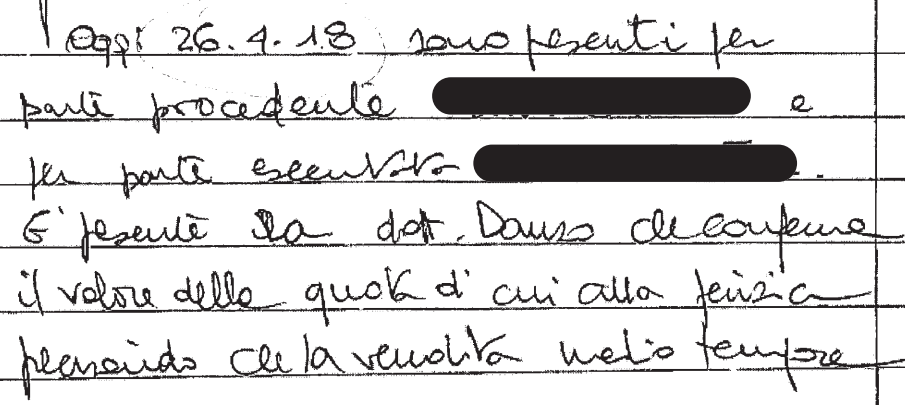 Oggi 26.4.18 sono presenti per
parte procedente e
per parte esecutata .
E' presente la dott. Danso che conferma
il valore della quota di cui alla perizia
precisando che la vendita medio tempore